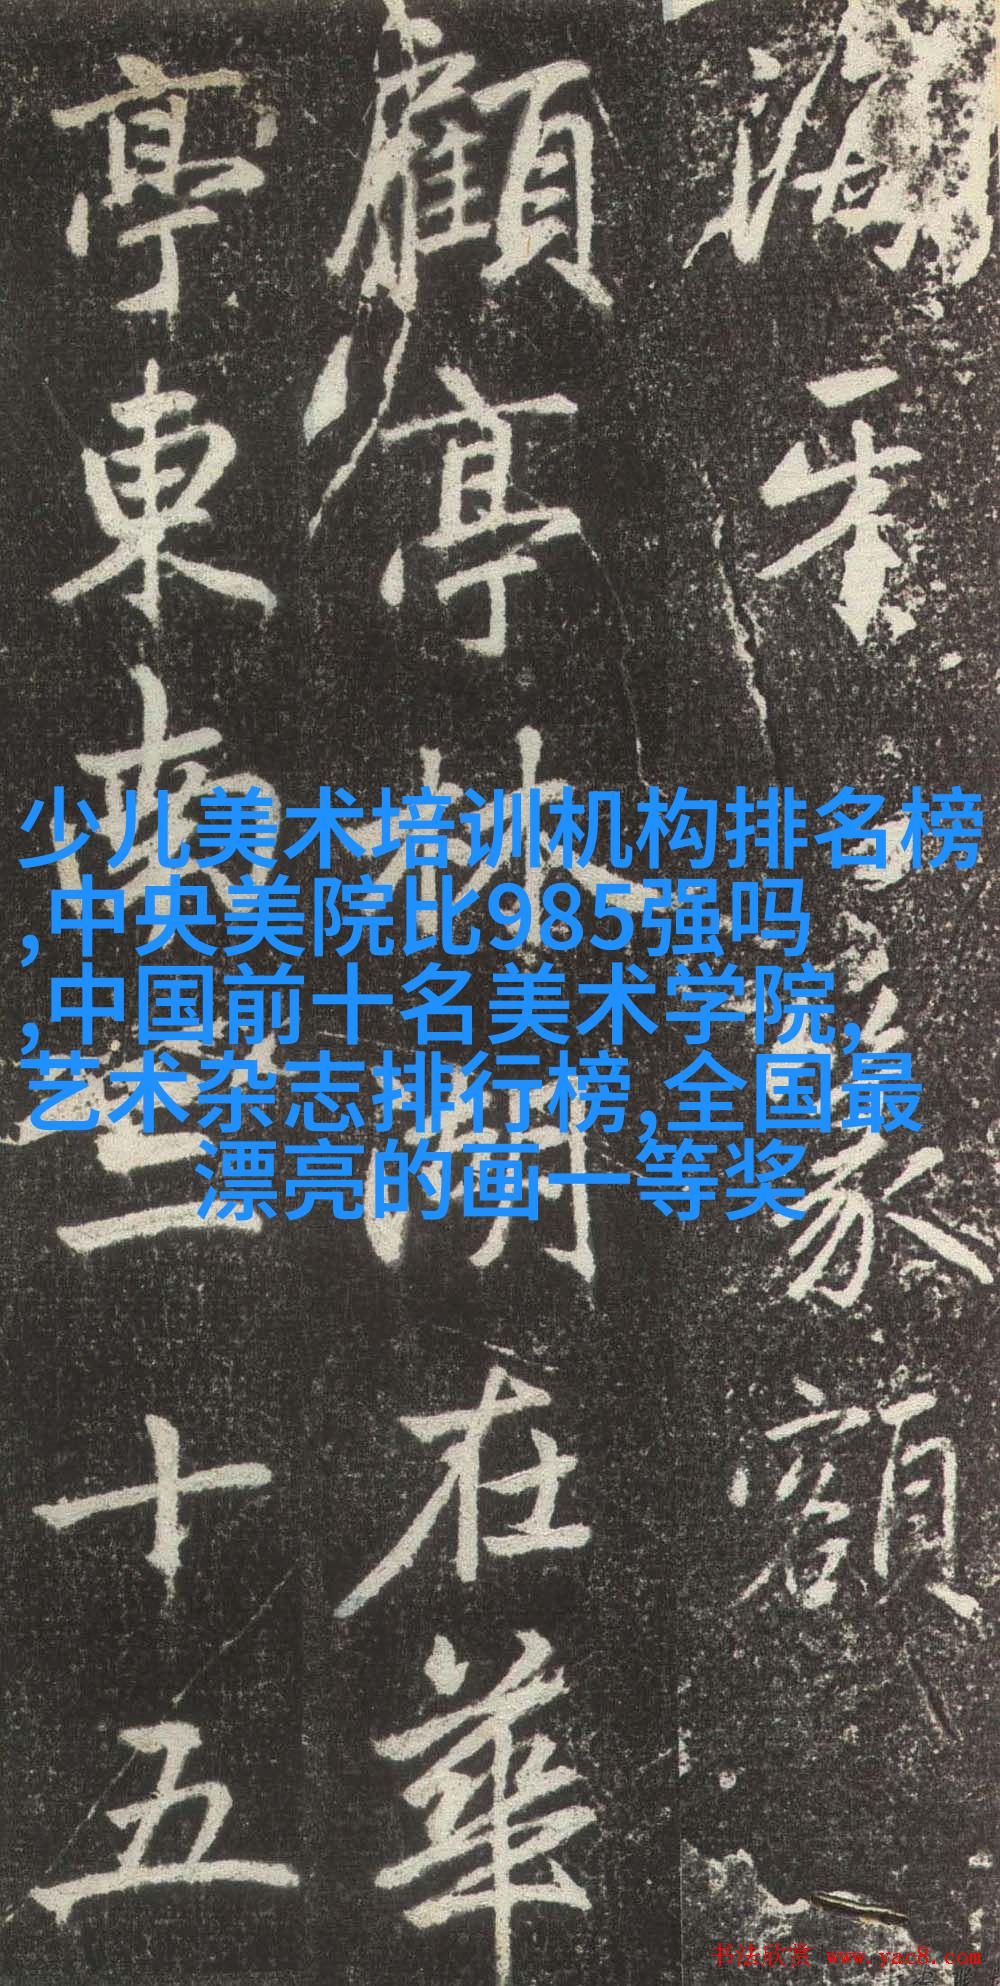 海牙
篆額
顧亭林湖在華
亭東南三十五
少儿美术培训机构排名榜
,中央美院比985强吗
,中国前十名美术学院,
艺术杂志排行榜,全国最
漂亮的画一等奖
书法欣赏 www.yac8.com